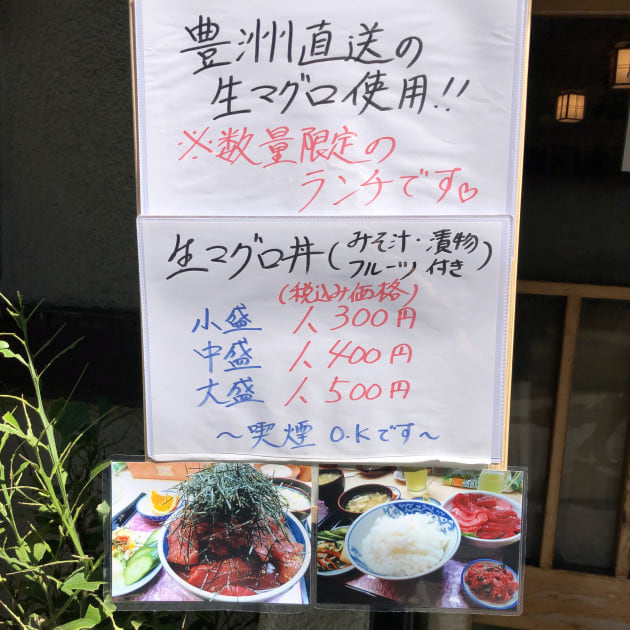 豊洲直送の
生マグロ使用!!
※数量限定の
ランチです♡
生マグロ丼(みそ汁・漬物
フルーツ付き)
(税込み価格)
小盛 1,300円
中盛 1,400円
大盛 1,500円
～喫煙 O.Kです～